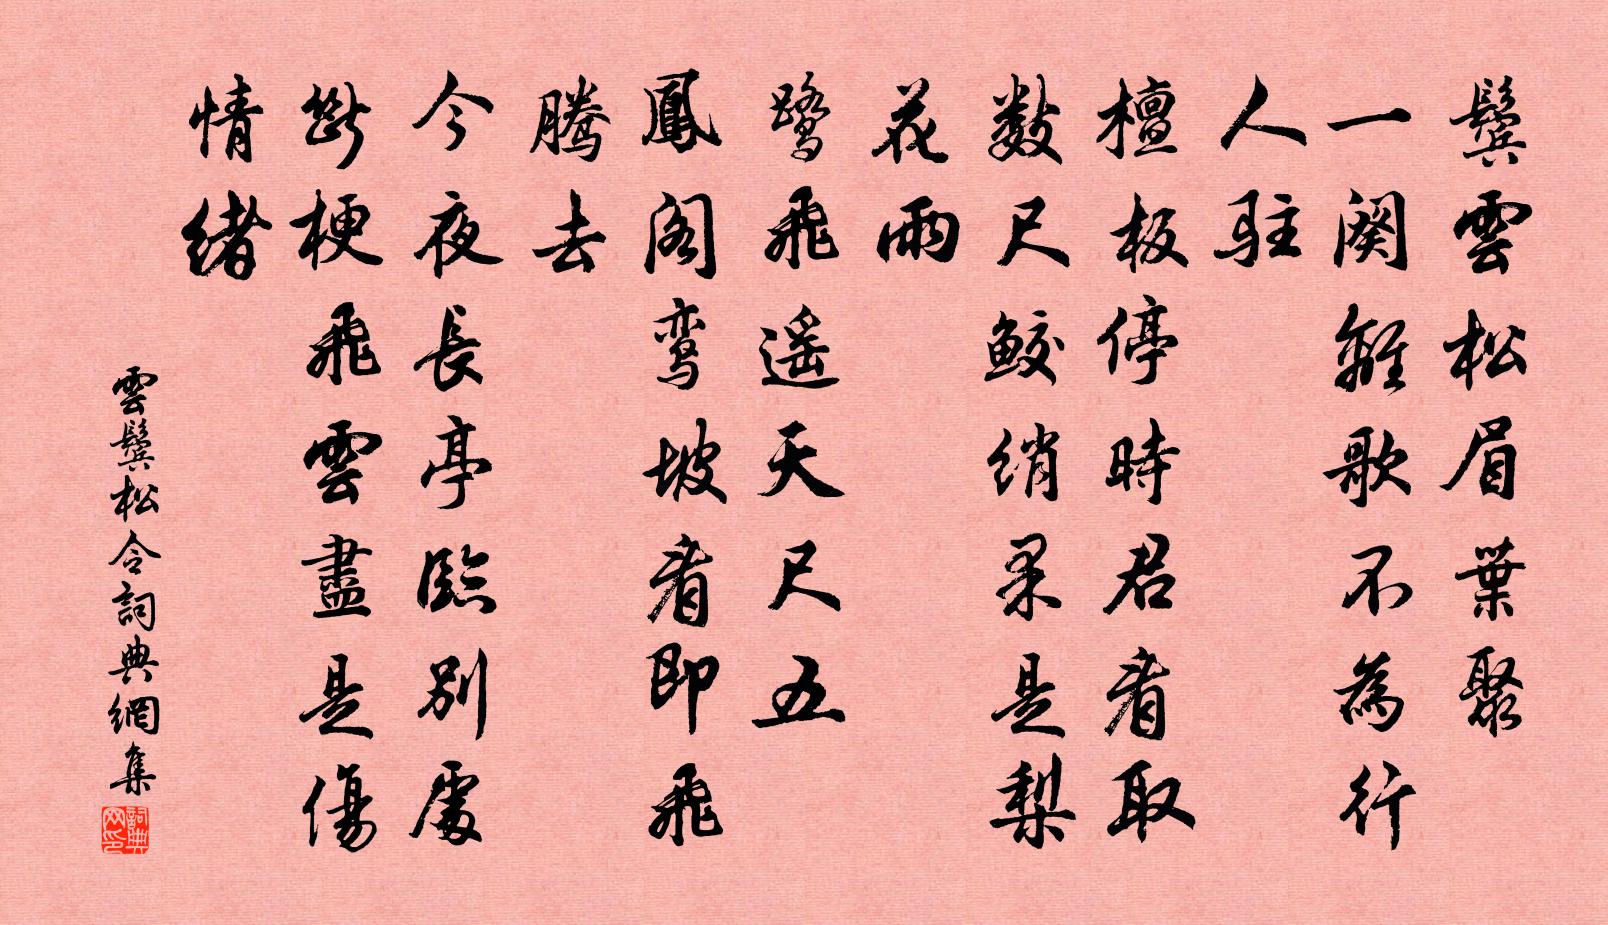 鬢雲松眉葉聚
一闋離歌不為行
人駐
檀板停時君看取
數尺鮫綃柔是梨
花雨
鹭飛遥天尺五
鳳閣鸾坡看即飛
騰去
今夜長亭臨別處
斷梗飛雲盡是傷
情緒
雲鬢松令詞典網集
詞典网印